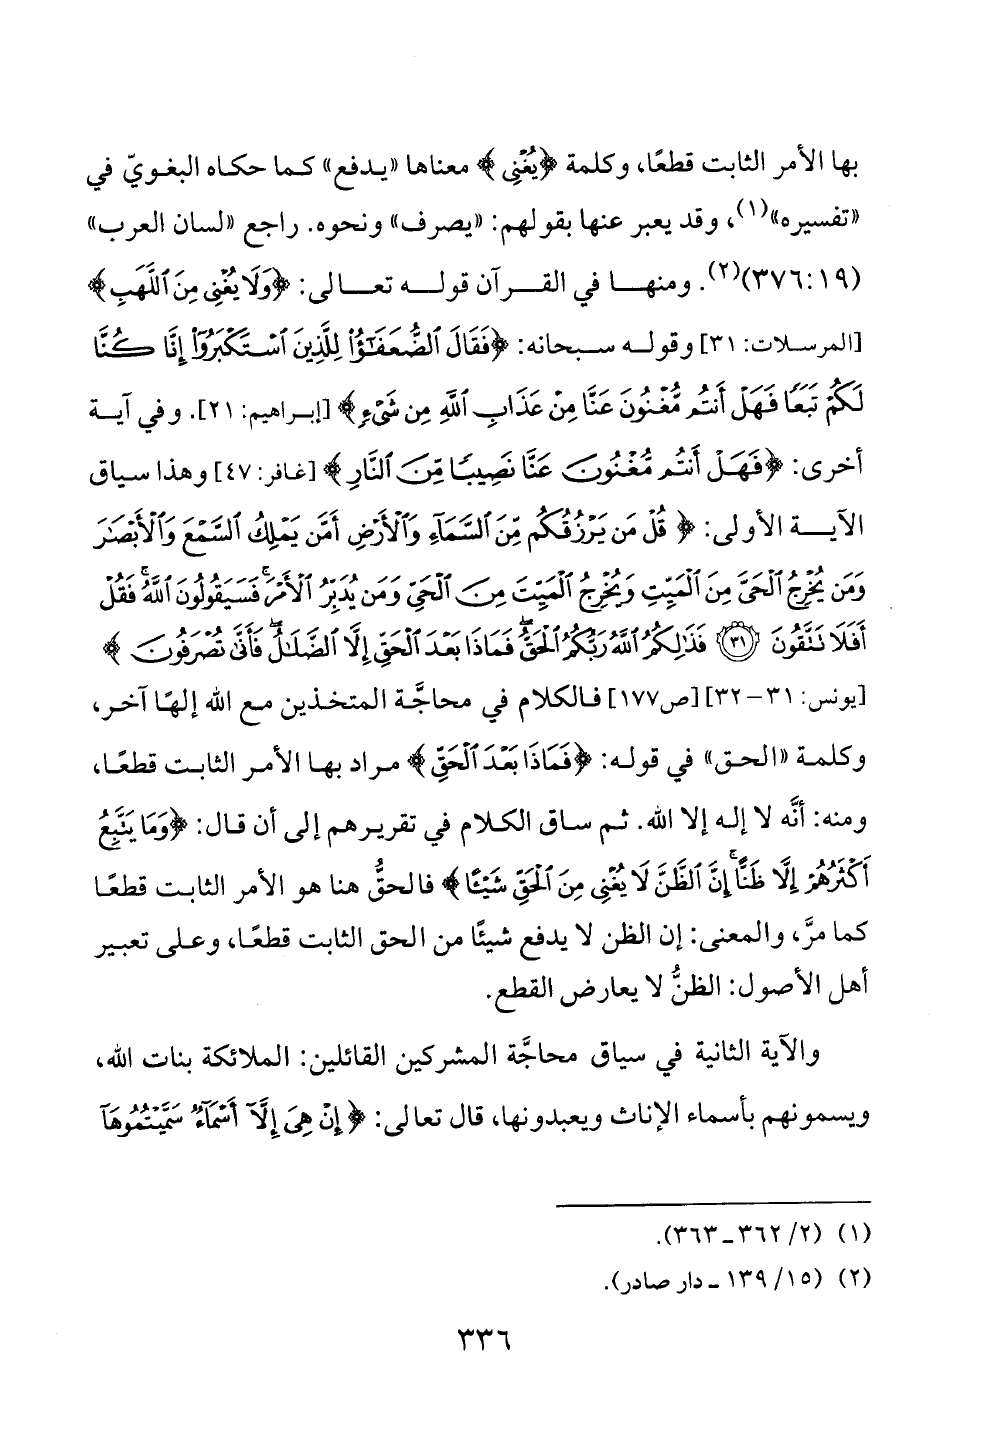 بها الأمر الثابت قطعًا، وكلمة ﴿يُغْنِي﴾ معناها «يدفع» كما حكاه البغويّ في
«تفسيره»(١)، وقد يعبر عنها بقولهم: «يصرف» ونحوه. راجع «لسان العرب»
(١٩: ٣٧٦)(٢). ومنها في القرآن قوله تعالى: ﴿وَلَا يُغْنِي مِنَ ٱللَّهَبِ﴾
[المرسلات: ٣١] وقوله سبحانه: ﴿فَقَالَ ٱلضُّعَفَٰٓؤُاْ لِلَّذِينَ ٱسْتَكْبَرُوٓاْ إِنَّا كُنَّا
لَكُمْ تَبَعًا فَهَلْ أَنتُم مُّغْنُونَ عَنَّا مِنْ عَذَابِ ٱللَّهِ مِن شَىْءٍ﴾ [إبراهيم: ٢١]. وفي آية
أخرى: ﴿فَهَلْ أَنتُم مُّغْنُونَ عَنَّا نَصِيبًا مِّنَ ٱلنَّارِ﴾ [غافر: ٤٧] وهذا سياق
الآية الأولى: ﴿قُلْ مَن يَرْزُقُكُم مِّنَ ٱلسَّمَآءِ وَٱلْأَرْضِ أَمَّن يَمْلِكُ ٱلسَّمْعَ وَٱلْأَبْصَٰرَ
وَمَن يُخْرِجُ ٱلْحَىَّ مِنَ ٱلْمَيِّتِ وَيُخْرِجُ ٱلْمَيِّتَ مِنَ ٱلْحَىِّ وَمَن يُدَبِّرُ ٱلْأَمْرَ ۚ فَسَيَقُولُونَ ٱللَّهُ ۚ فَقُلْ
أَفَلَا تَتَّقُونَ ﴿٣١﴾ فَذَٰلِكُمُ ٱللَّهُ رَبُّكُمُ ٱلْحَقُّ ۖ فَمَاذَا بَعْدَ ٱلْحَقِّ إِلَّا ٱلضَّلَٰلُ ۖ فَأَنَّىٰ تُصْرَفُونَ﴾
[يونس: ٣١-٣٢] [ص١٧٧] فالكلام في محاجَّة المتخذين مع الله إلهًا آخر،
وكلمة «الحق» في قوله: ﴿فَمَاذَا بَعْدَ ٱلْحَقِّ﴾ مراد بها الأمر الثابت قطعًا،
ومنه: أنَّه لا إله إلا الله. ثم ساق الكلام في تقريرهم إلى أن قال: ﴿وَمَا يَتَّبِعُ
أَكْثَرُهُمْ إِلَّا ظَنًّا ۚ إِنَّ ٱلظَّنَّ لَا يُغْنِي مِنَ ٱلْحَقِّ شَيْـًٔا﴾ فالحقُّ هنا هو الأمر الثابت قطعًا
كما مرَّ، والمعنى: إن الظن لا يدفع شيئًا من الحق الثابت قطعًا، وعلى تعبير
أهل الأصول: الظنُّ لا يعارض القطع.
والآية الثانية في سياق محاجَّة المشركين القائلين: الملائكة بنات الله،
ويسمونهم بأسماء الإناث ويعبدونها، قال تعالى: ﴿إِنْ هِىَ إِلَّآ أَسْمَآءٌ سَمَّيْتُمُوهَآ
(١) (٢/ ٣٦٢ـ٣٦٣).
(٢) (١٥/ ١٣٩ ـ دار صادر).
٣٣٦